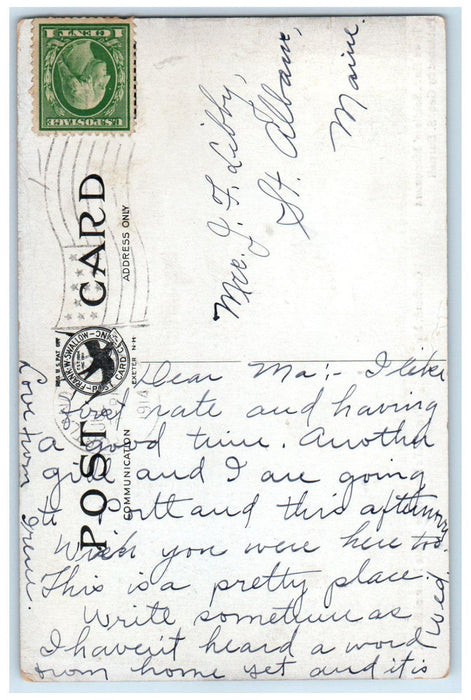 U.S. POSTAGE
1 CENT 1
POST CARD
ADDRESS ONLY
COMMUNICATION
FRANK W. SWALLOW POST CARD CO. INC.
EXETER N·H·
REG. U.S. PAT. OFF.
1914
Mrs. J. F. Libby,
St. Albans,
Maine.
Dear Ma:- I like
first rate and having
a good time. Another
girl and I are going
to Portland this afternoon
Wed.
Wish you were here too.
This is a pretty place.
Write sometime as
I haven't heard a word
from home yet and it is
Love from Irene.